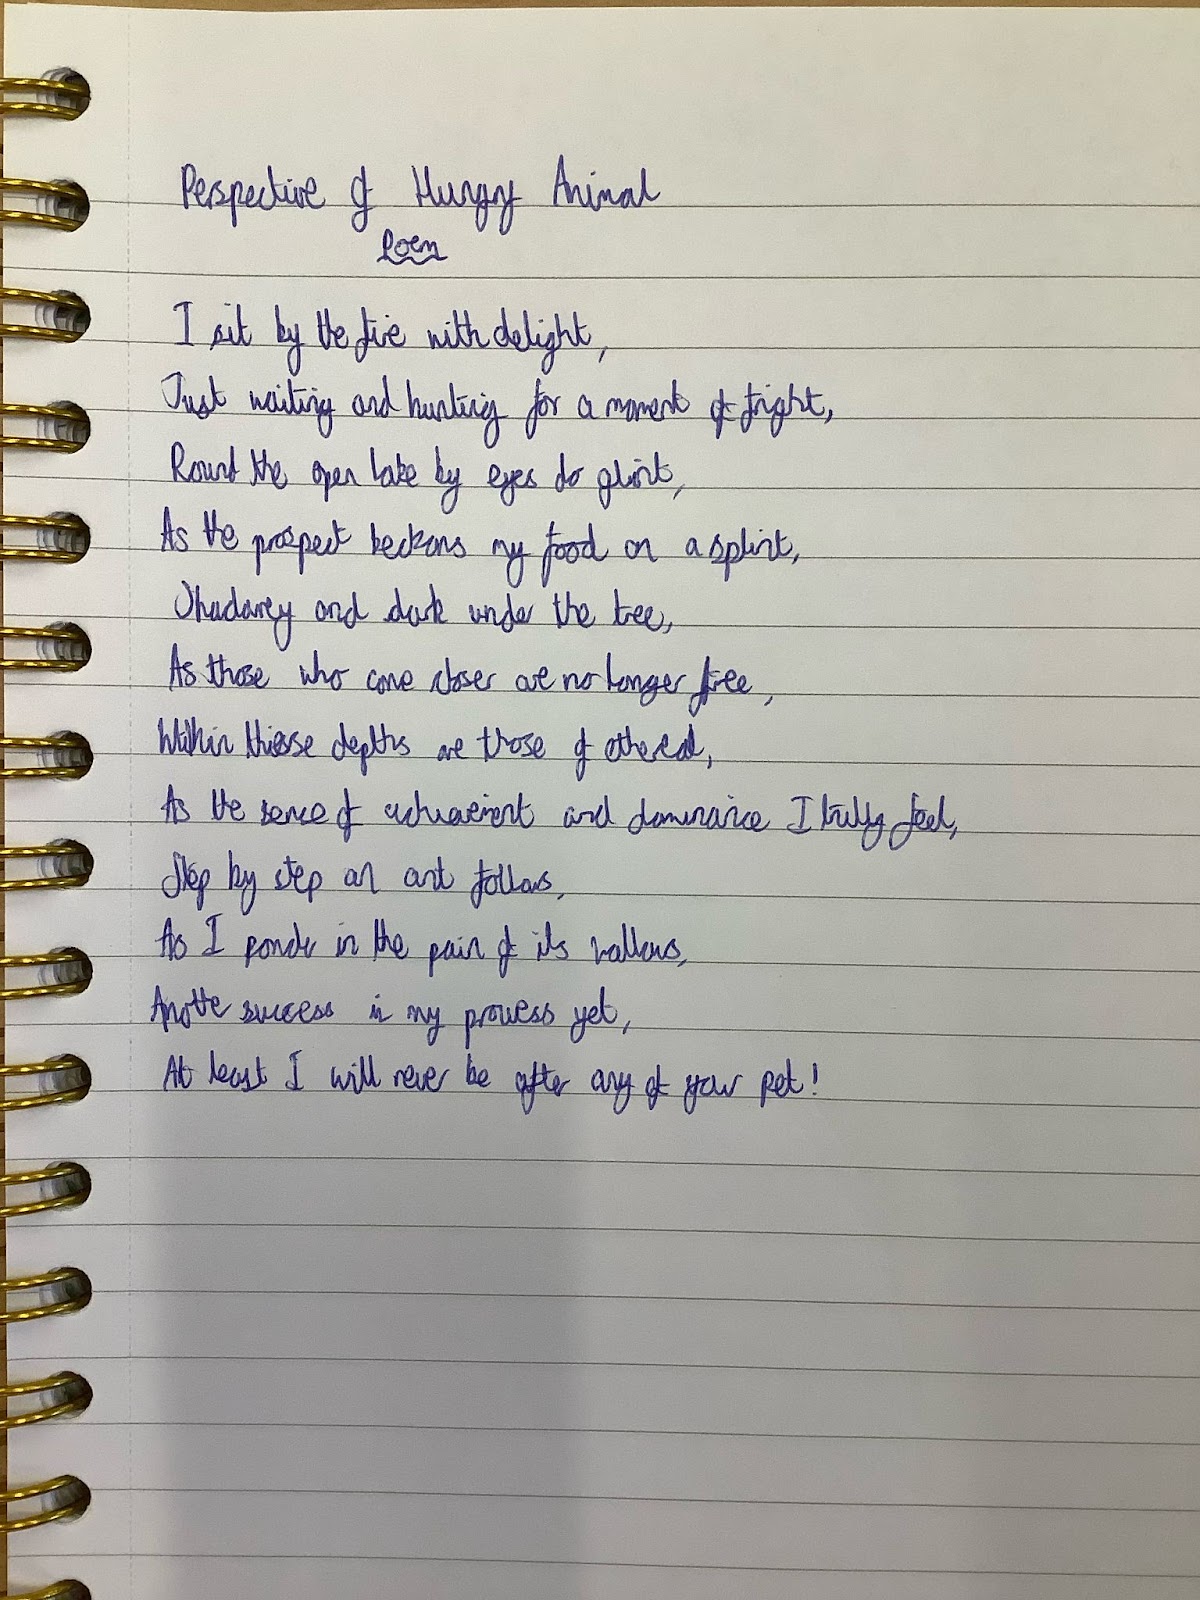 Perspective of Hungry Animal
Poem
I sit by the fire with delight,
Just waiting and hunting for a moment of fright,
Round the open lake by eyes do glint,
As the prospect beckons my food on a splint,
Shadowey and dark under the tree,
As those who come closer are no longer free,
Within these depths are those of
As the sence of achievement and dominance I trully feel,
Step by step an ant follows,
As I ponder in the pain of its wallows,
Another success in my prowess yet,
At least I will never be after any of your pet!